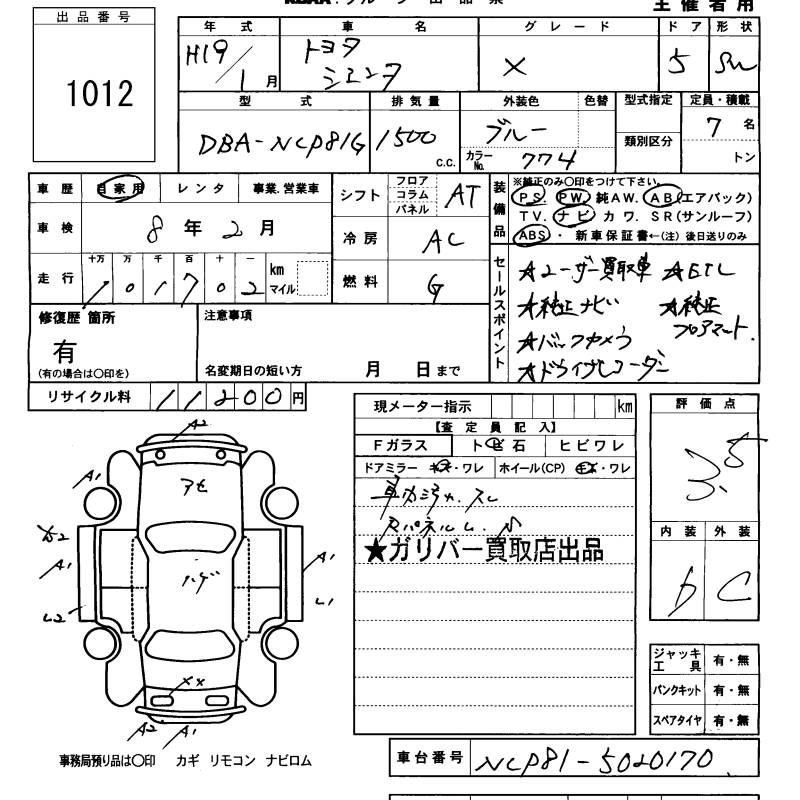 主催者用
出品番号
1012
年式 車名 グレード ドア 形状
H19/1月 トヨタ シエンタ X 5
型式 排気量 外装色 色替 型式指定 定員・積載
DBA-NCP81G 1500 c.c. ブルー 類別区分 7名
カラーNo. 774 トン
車歴 自家用 レンタ 事業.営業車
車検 8年2月
走行 十万 万 千 百 十 一 km マイル
101702
シフト フロア コラム パネル AT
冷房 AC
燃料 G
装備品
※純正のみ〇印をつけて下さい。
PS. PW. 純AW. AB(エアバック)
TV. ナビ カワ. SR(サンルーフ)
ABS・ 新車保証書←(注)後日送りのみ
セールスポイント
★ユーザー買取車 ★ETC
★純正ナビ ★純正フロアマット.
★バックカメラ
★ドライブレコーダー
修復歴 箇所
有
(有の場合は〇印を)
注意事項
名変期日の短い方 月 日まで
リサイクル料 11200円
現メーター指示 km
【査定員記入】
Fガラス トビ石 ヒビワレ
ドアミラー キズ・ワレ ホイール(CP) キズ・ワレ
★ガリバー買取店出品
評価点
3.5
内装 外装
b C
ジャッキ工具 有・無
パンクキット 有・無
スペアタイヤ 有・無
A2
A1
アセ
A1
A1
ハゲ
L2
L1
XX
A2 A1
事務局預り品は〇印 カギ リモコン ナビロム
車台番号 NCP81-5020170